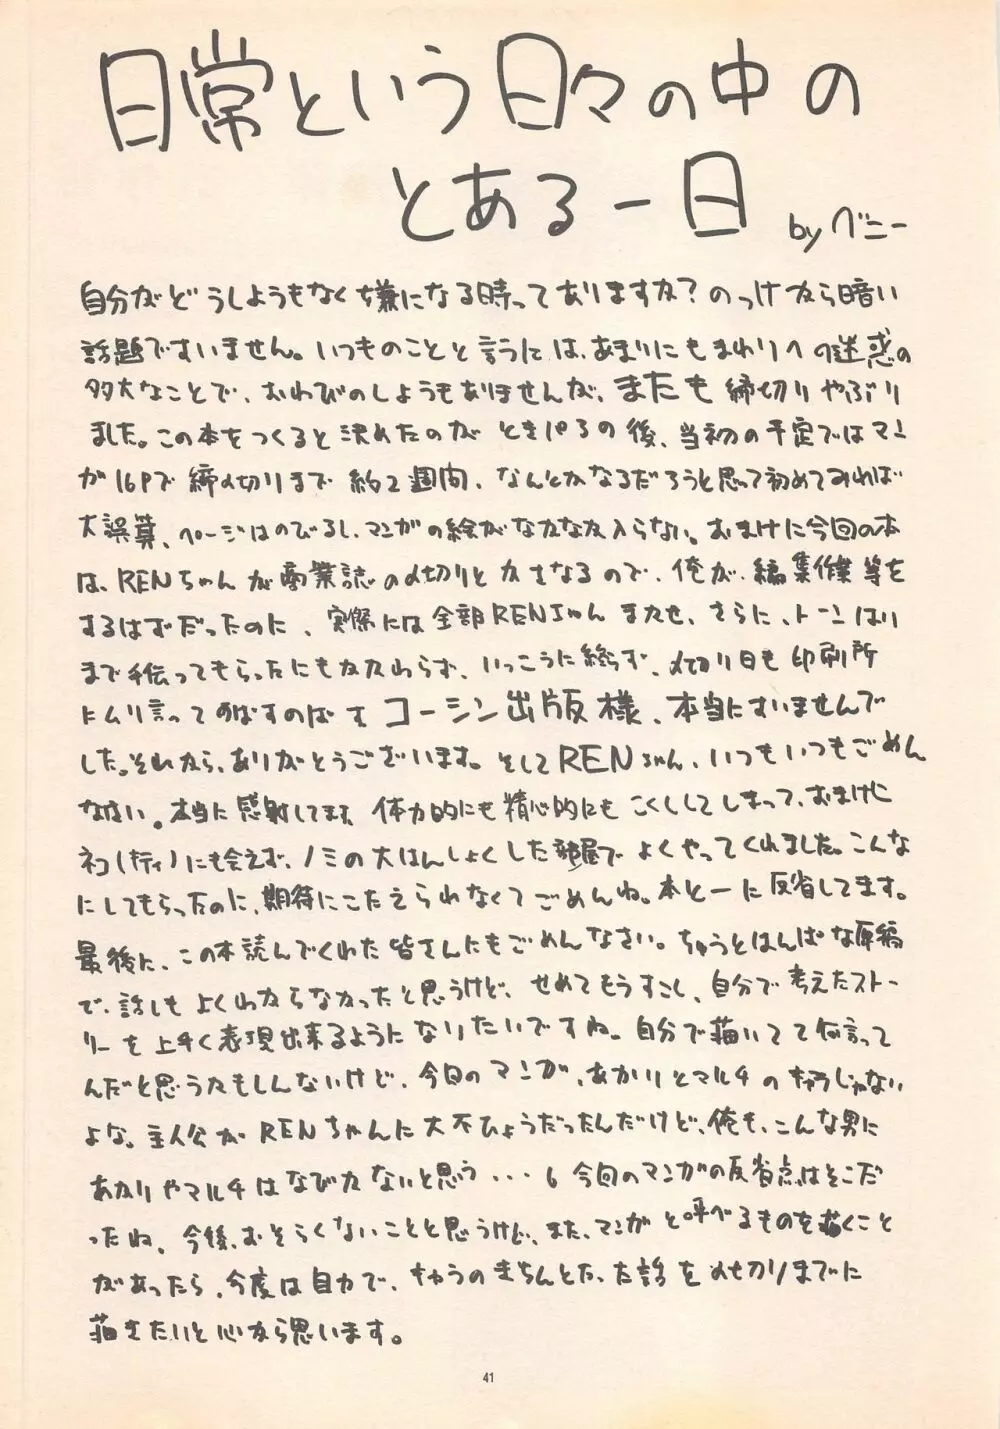 日常という日々の中の
とある一日 byベニー
自分がどうしようもなく嫌になる時ってありますか?のっけから暗い
話題ですいません。いつものことと言うには、あまりにもまわりへの迷惑の
多大なことで、おわびのしようもありませんが、またも締切りやぶり
ました。この本をつくると決めたのがときパろの後、当初の予定ではマン
が16Pで締め切りまで約2週間、なんとかなるだろうと思って初めてみれば
大誤算、ページはのびるし、マンガの絵がなかなか入らない。おまけに今回の本
は、RENちゃんが商業誌の〆切りとかさなるので、俺が、編集作業等を
するはずだったのに、実際には全部RENちゃんまかせ、さらに、トーンはり
まで手伝ってもらったにもかかわらず、いっこうに終らず、〆切り日も印刷所
にムリ言ってのばすのばす コーシン出版様、本当にすいませんで
した。それから、ありがとうございます。そしてRENちゃん、いつもいつもごめん
なさい。本当に感射してます 体力的にも精心的にもこくししてしまって、おまけに
ネコ(ティ)にも会えず、ノミの大はんしょくした部屋でよくやってくれました。こんな
にしてもらったのに、期待にこたえられなくてごめんね。本と一に反省してます。
最後に、この本読んでくれた皆さんにもごめんなさい。ちゅうとはんぱな原稿
で、話しもよくわからなかったと思うけど、せめてもうすこし、自分で考えたスト-
リーを上手く表現出来るようになりたいですね。自分で描いてて何言って
んだと思うかもしんないけど、今回のマンガ、あかりとマルチのキャラじゃない
よな。主人公がRENちゃんに大不ひょうだったんだけど、俺も、こんな男に
あかりやマルチはなびかないと思う・・・。今回のマンガの反省点はそこだ
ったね、今後、おそらくないことと思うけど、また、マンガと呼べるものを描くこと
があったら、今度は自力で、キャラのきちんとた、た話を〆切りまでに
描きたいと心から思います。
41